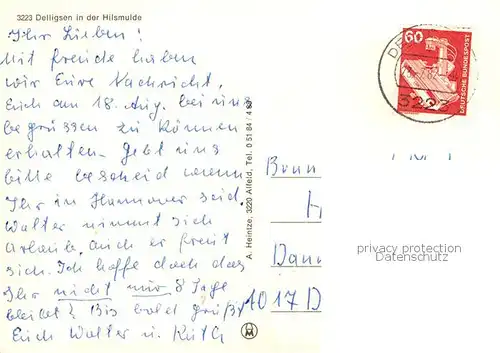 3223 Delligsen in der Hilsmulde
Ihr Lieben!
Mit freude haben
wir Eure Nachricht,
Euch am 18. Aug. bei uns
begrüssen zu können
erhalten. Gebt uns
bitte bescheid wenn
Ihr in Hannover seid.
Walter nimmt sich
Urlaub. Auch er freut
sich. Ich hoffe doch das
Ihr nicht nur 8 Tage
bleibt? Bis bald grüßt
Euch Walter u. Ruth
A. Heintze, 3220 Alfeld, Tel. 0 51 84 /
60
DEUTSCHE BUNDESPOST
3223
Dann
privacy protection
Datenschutz